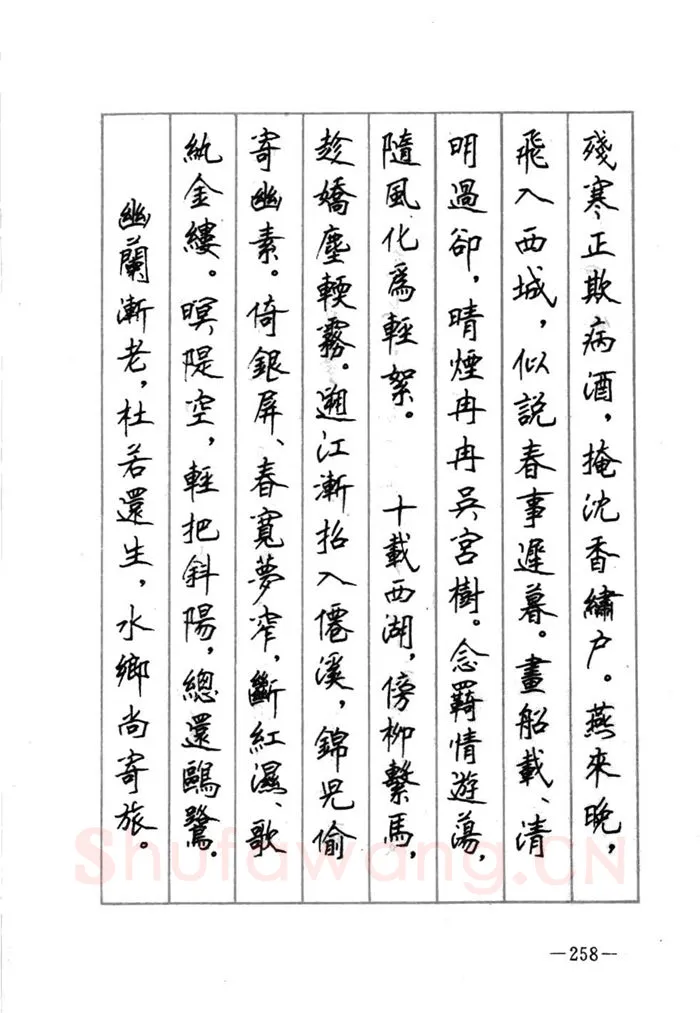 殘寒正欺病酒，掩沈香繡户。燕來晚，
飛入西城，似説春事遲暮。畫船載、清
明過卻，晴煙冉冉吳宮樹。念羈情遊蕩，
隨風化爲輕絮。　十載西湖，傍柳繫馬，
趁嬌塵輭霧。遡江漸招入僊溪，錦兒偷
寄幽素。倚銀屏、春寬夢窄，斷紅濕、歌
紈金縷。暝隄空，輕把斜陽，總還鷗鷺。
幽蘭漸老，杜若還生，水鄉尚寄旅。
Shufawang.CN
—258—